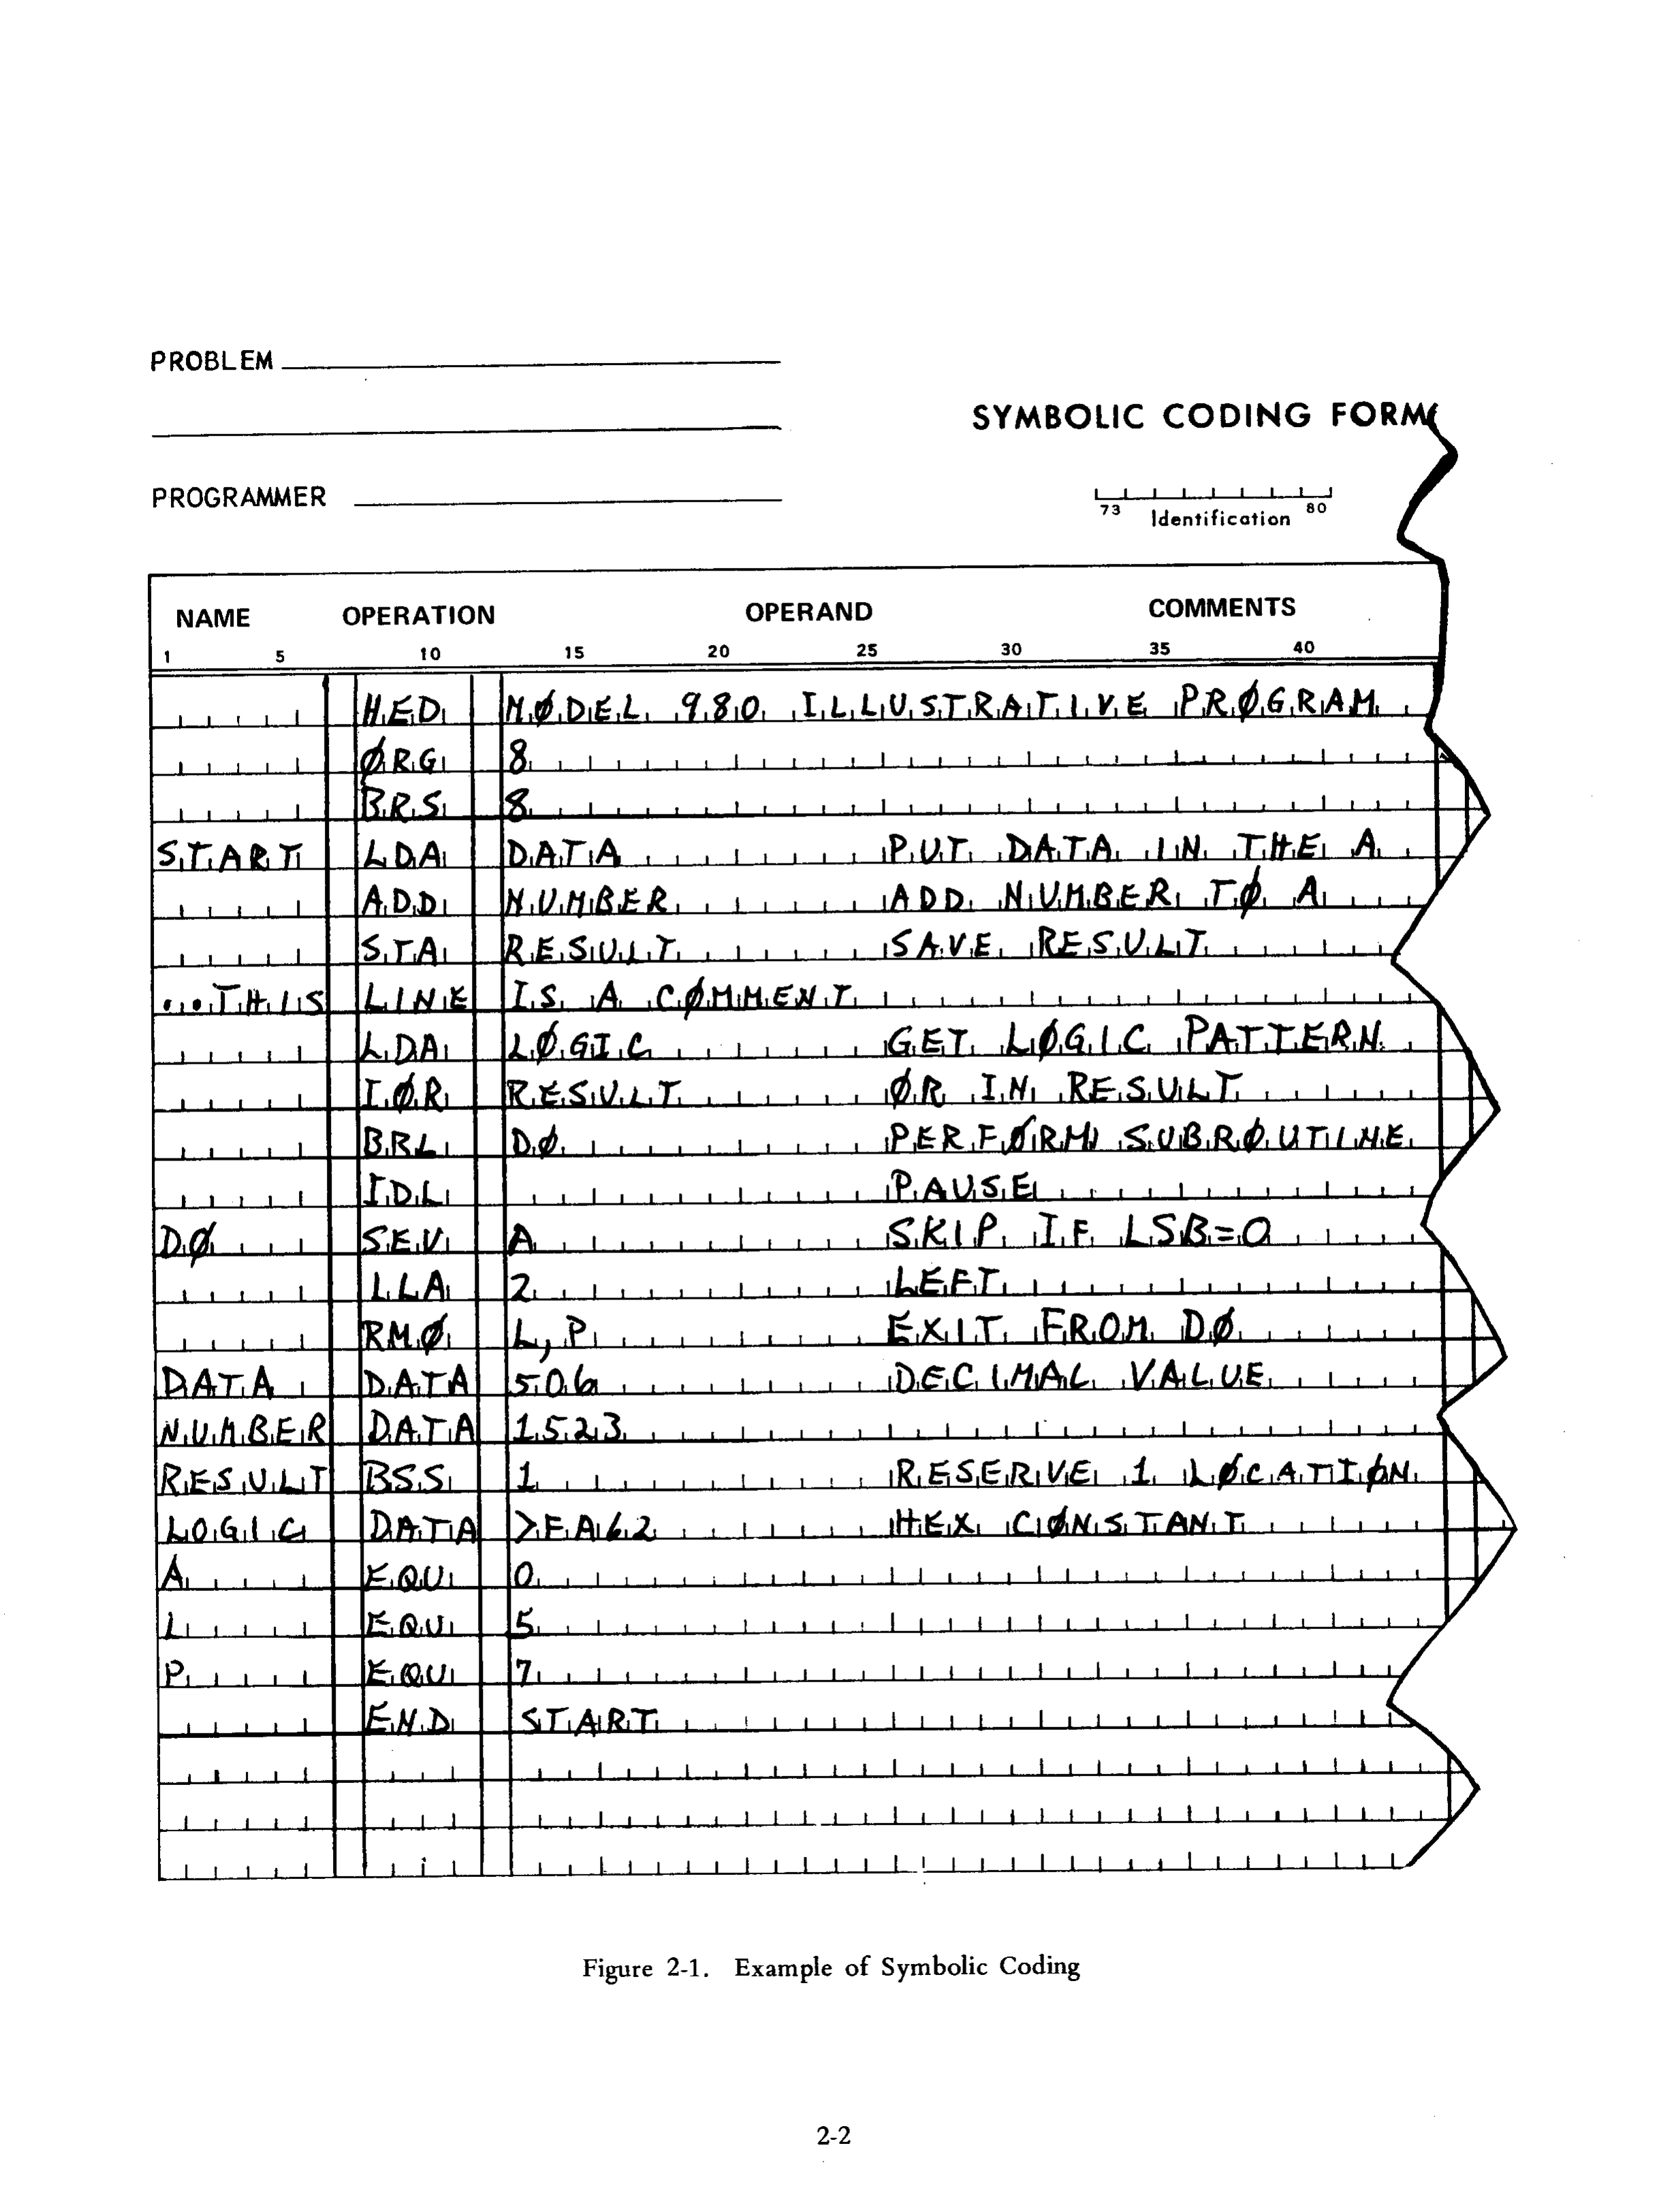 PROBLEM
SYMBOLIC CODING FORM
PROGRAMMER
73 Identification 80
NAME OPERATION OPERAND COMMENTS
1 5 10 15 20 25 30 35 40
HED MØDEL 980 ILLUSTRATIVE PRØGRAM
ØRG 8
BRS 8
START LDA DATA PUT DATA IN THE A
ADD NUMBER ADD NUMBER TØ A
STA RESULT SAVE RESULT
...THIS LINE IS A CØMMENT
LDA LØGIC GET LØGIC PATTERN
IØR RESULT ØR IN RESULT
BRL DØ PERFØRM SUBRØUTINE
IDL PAUSE
DØ SEV A SKIP IF LSB=0
LLA 2 LEFT
RMØ L,P EXIT FROM DØ
DATA DATA 506 DECIMAL VALUE
NUMBER DATA 1523
RESULT BSS 1 RESERVE 1 LØCATIØN
LOGIC DATA >FA62 HEX CØNSTANT
A EQU 0
L EQU 5
P EQU 7
END START
Figure 2-1. Example of Symbolic Coding
2-2